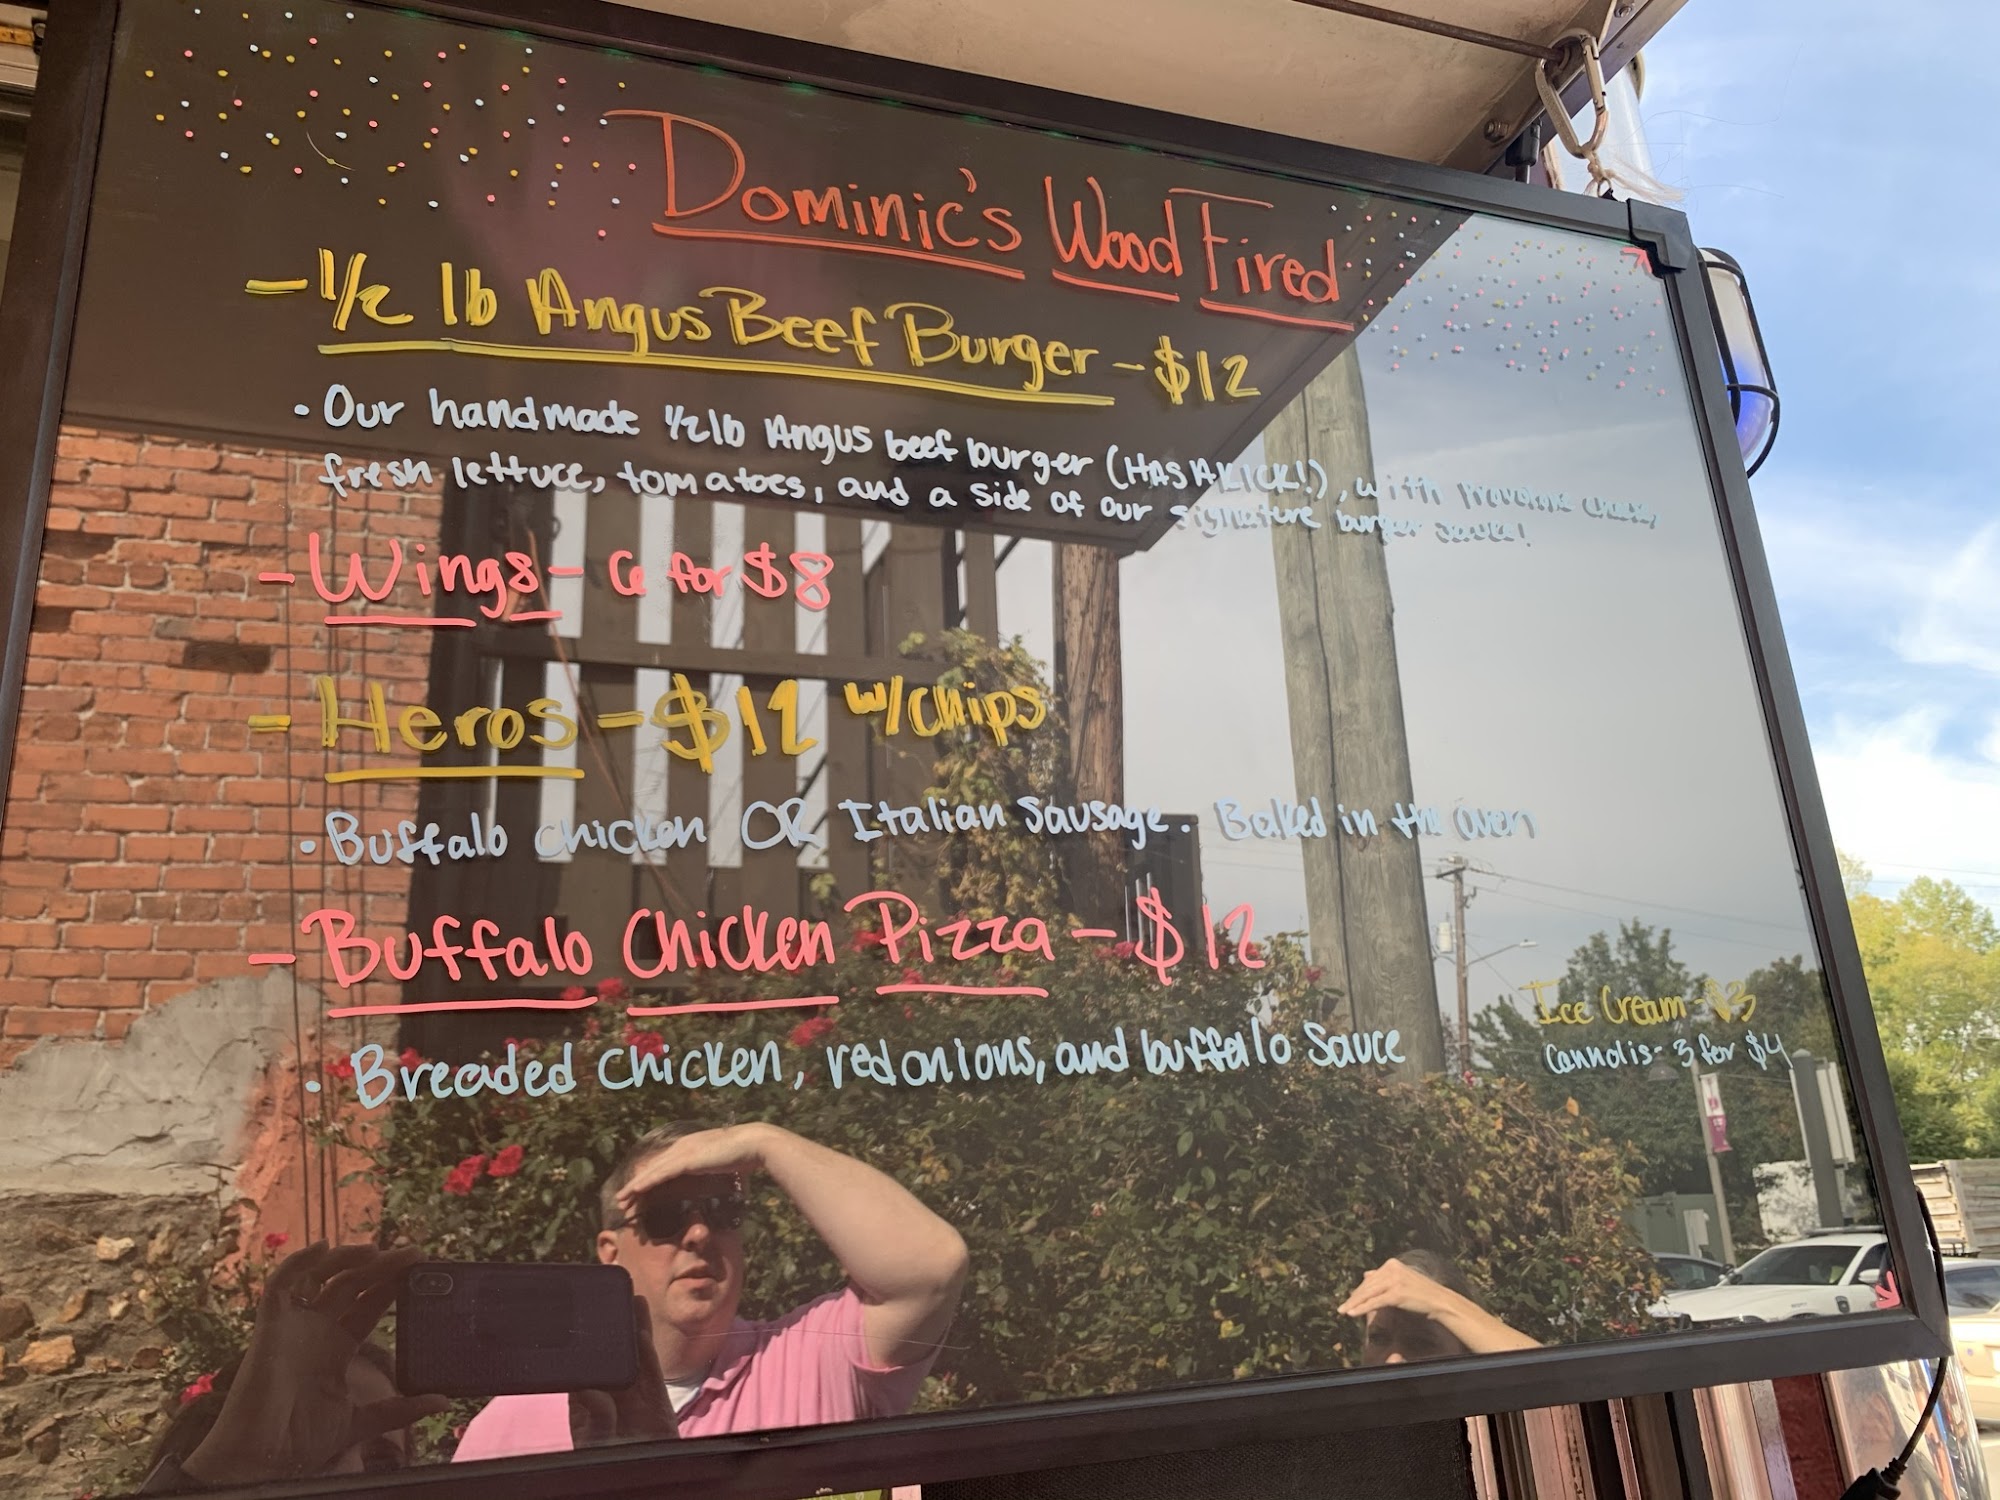 Dominic's Wood Fired
- 1/2 lb Angus Beef Burger - $12
• Our handmade 1/2 lb Angus beef burger (HAS A KICK!), with Provolone cheese,
fresh lettuce, tomatoes, and a side of our signature burger sauce!
- Wings - 6 for $8
- Heros - $12 w/chips
• Buffalo chicken OR Italian Sausage. Baked in the oven
- Buffalo Chicken Pizza - $12
• Breaded Chicken, red onions, and buffalo Sauce
Ice Cream - $3
Cannolis - 3 for $4